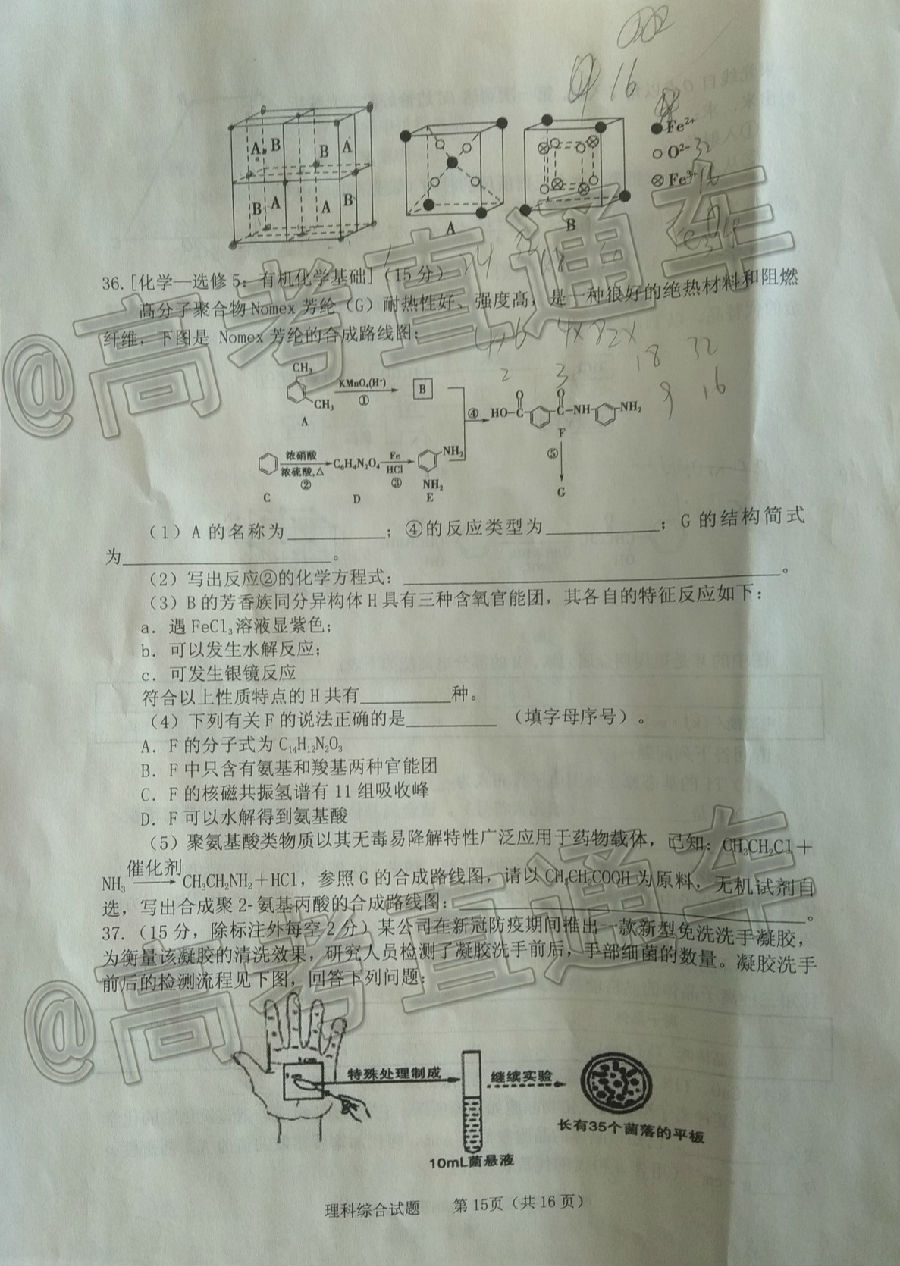 A B B A
B A A B
A
B
Fe²⁺
O²⁻
Fe³⁺
36.[化学—选修5：有机化学基础]（15分）
高分子聚合物Nomex芳纶（G）耐热性好、强度高，是一种很好的绝热材料和阻燃
纤维，下图是 Nomex芳纶的合成路线图：
CH₃
CH₃
A
KMnO₄(H⁺)
①
B
④
HO-C O C O -NH- -NH₂
F
⑤
G
C
浓硝酸
浓硫酸,△
②
C₆H₄N₂O₄
D
Fe
HCl
③
NH₂
NH₂
E
（1）A的名称为________；④的反应类型为________；G的结构简式
为________。
（2）写出反应②的化学方程式：________。
（3）B的芳香族同分异构体H具有三种含氧官能团，其各自的特征反应如下：
a. 遇FeCl₃溶液显紫色；
b. 可以发生水解反应；
c. 可发生银镜反应
符合以上性质特点的H共有________种。
（4）下列有关F的说法正确的是________（填字母序号）。
A. F的分子式为C₁₄H₁₂N₂O₃
B. F中只含有氨基和羧基两种官能团
C. F的核磁共振氢谱有11组吸收峰
D. F可以水解得到氨基酸
（5）聚氨基酸类物质以其无毒易降解特性广泛应用于药物载体，已知：CH₃CH₂Cl＋
NH₃ 催化剂→ CH₃CH₂NH₂＋HCl，参照G的合成路线图，请以CH₃CH₂COOH为原料，无机试剂自
选，写出合成聚2-氨基丙酸的合成路线图：________。
37.（15分，除标注外每空2分）某公司在新冠防疫期间推出一款新型免洗洗手凝胶，
为衡量该凝胶的清洗效果，研究人员检测了凝胶洗手前后，手部细菌的数量。凝胶洗手
前后的检测流程见下图，回答下列问题：
特殊处理制成
继续实验
10mL菌悬液
长有35个菌落的平板
理科综合试题 第15页（共16页）
@高考直通车
@高考直通车
16
32
18 32
9 16
2 3